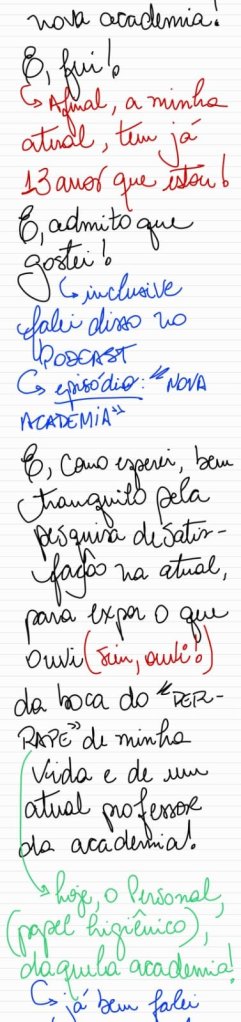 nova academia!
E, fui!
↳ Afinal, a minha
atual, tem já
13 anos que estou!
E, admito que
gostei!
↳ inclusive
falei disso no
PODCAST
↳ episódio: "NOVA
ACADEMIA"
E, como esperei, bem
tranquilo pela
pesquisa de satis-
fação na atual,
para expor o que
ouvi (sim, ouvi!)
da boca do "DER-
RAPE" de minha
vida e de um
atual professor
da academia!
↳ hoje, o Personal,
(papel higiênico),
daquela academia!
↳ já bem falei